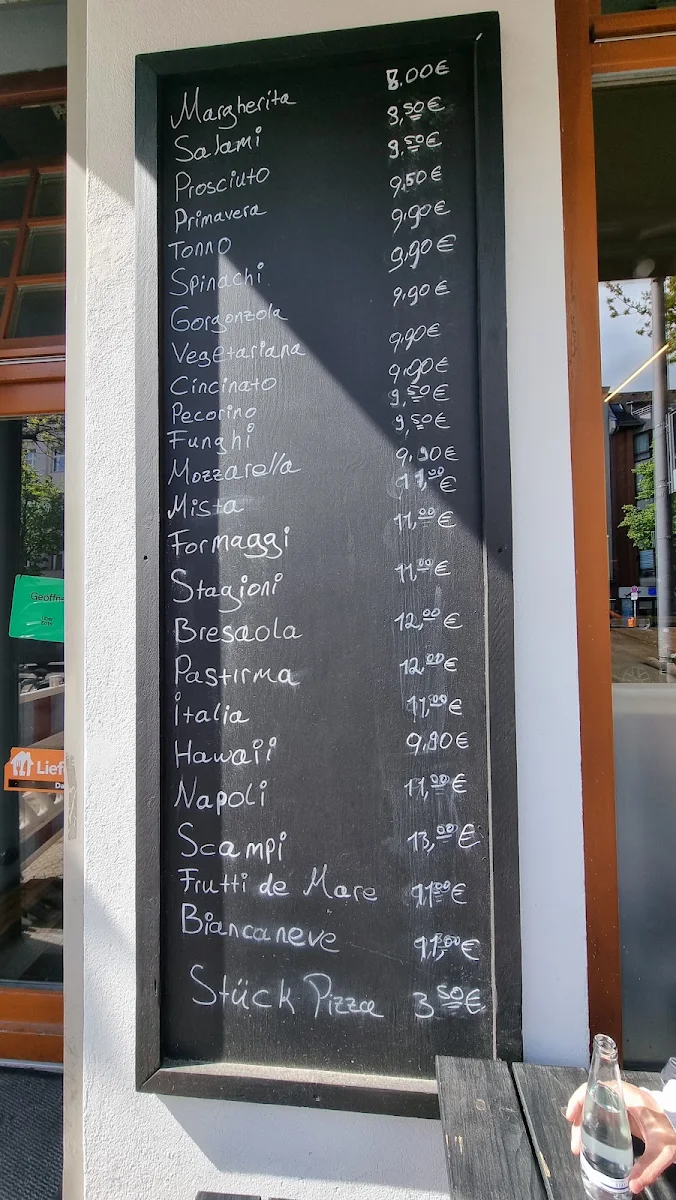 Margherita 8.00€
Salami 8,50€
Prosciuto 9,50€
Primavera 9,50€
Tonno 9,90€
Spinachi 9,90€
Gorgonzola 9,90€
Vegetariana 9,90€
Cincinato 9,90€
Pecorino 9,50€
Funghi 9,50€
Mozzarella 9,90€
Mista 11,00€
Formaggi 11,00€
Stagioni 11,00€
Bresaola 12,00€
Pastirma 12,00€
İtalia 11,00€
Hawaii 9,90€
Napoli 11,00€
Scampi 13,00€
Frutti de Mare 11,00€
Biancaneve 11,00€
Stück Pizza 3 50€
Geöffn
Lief